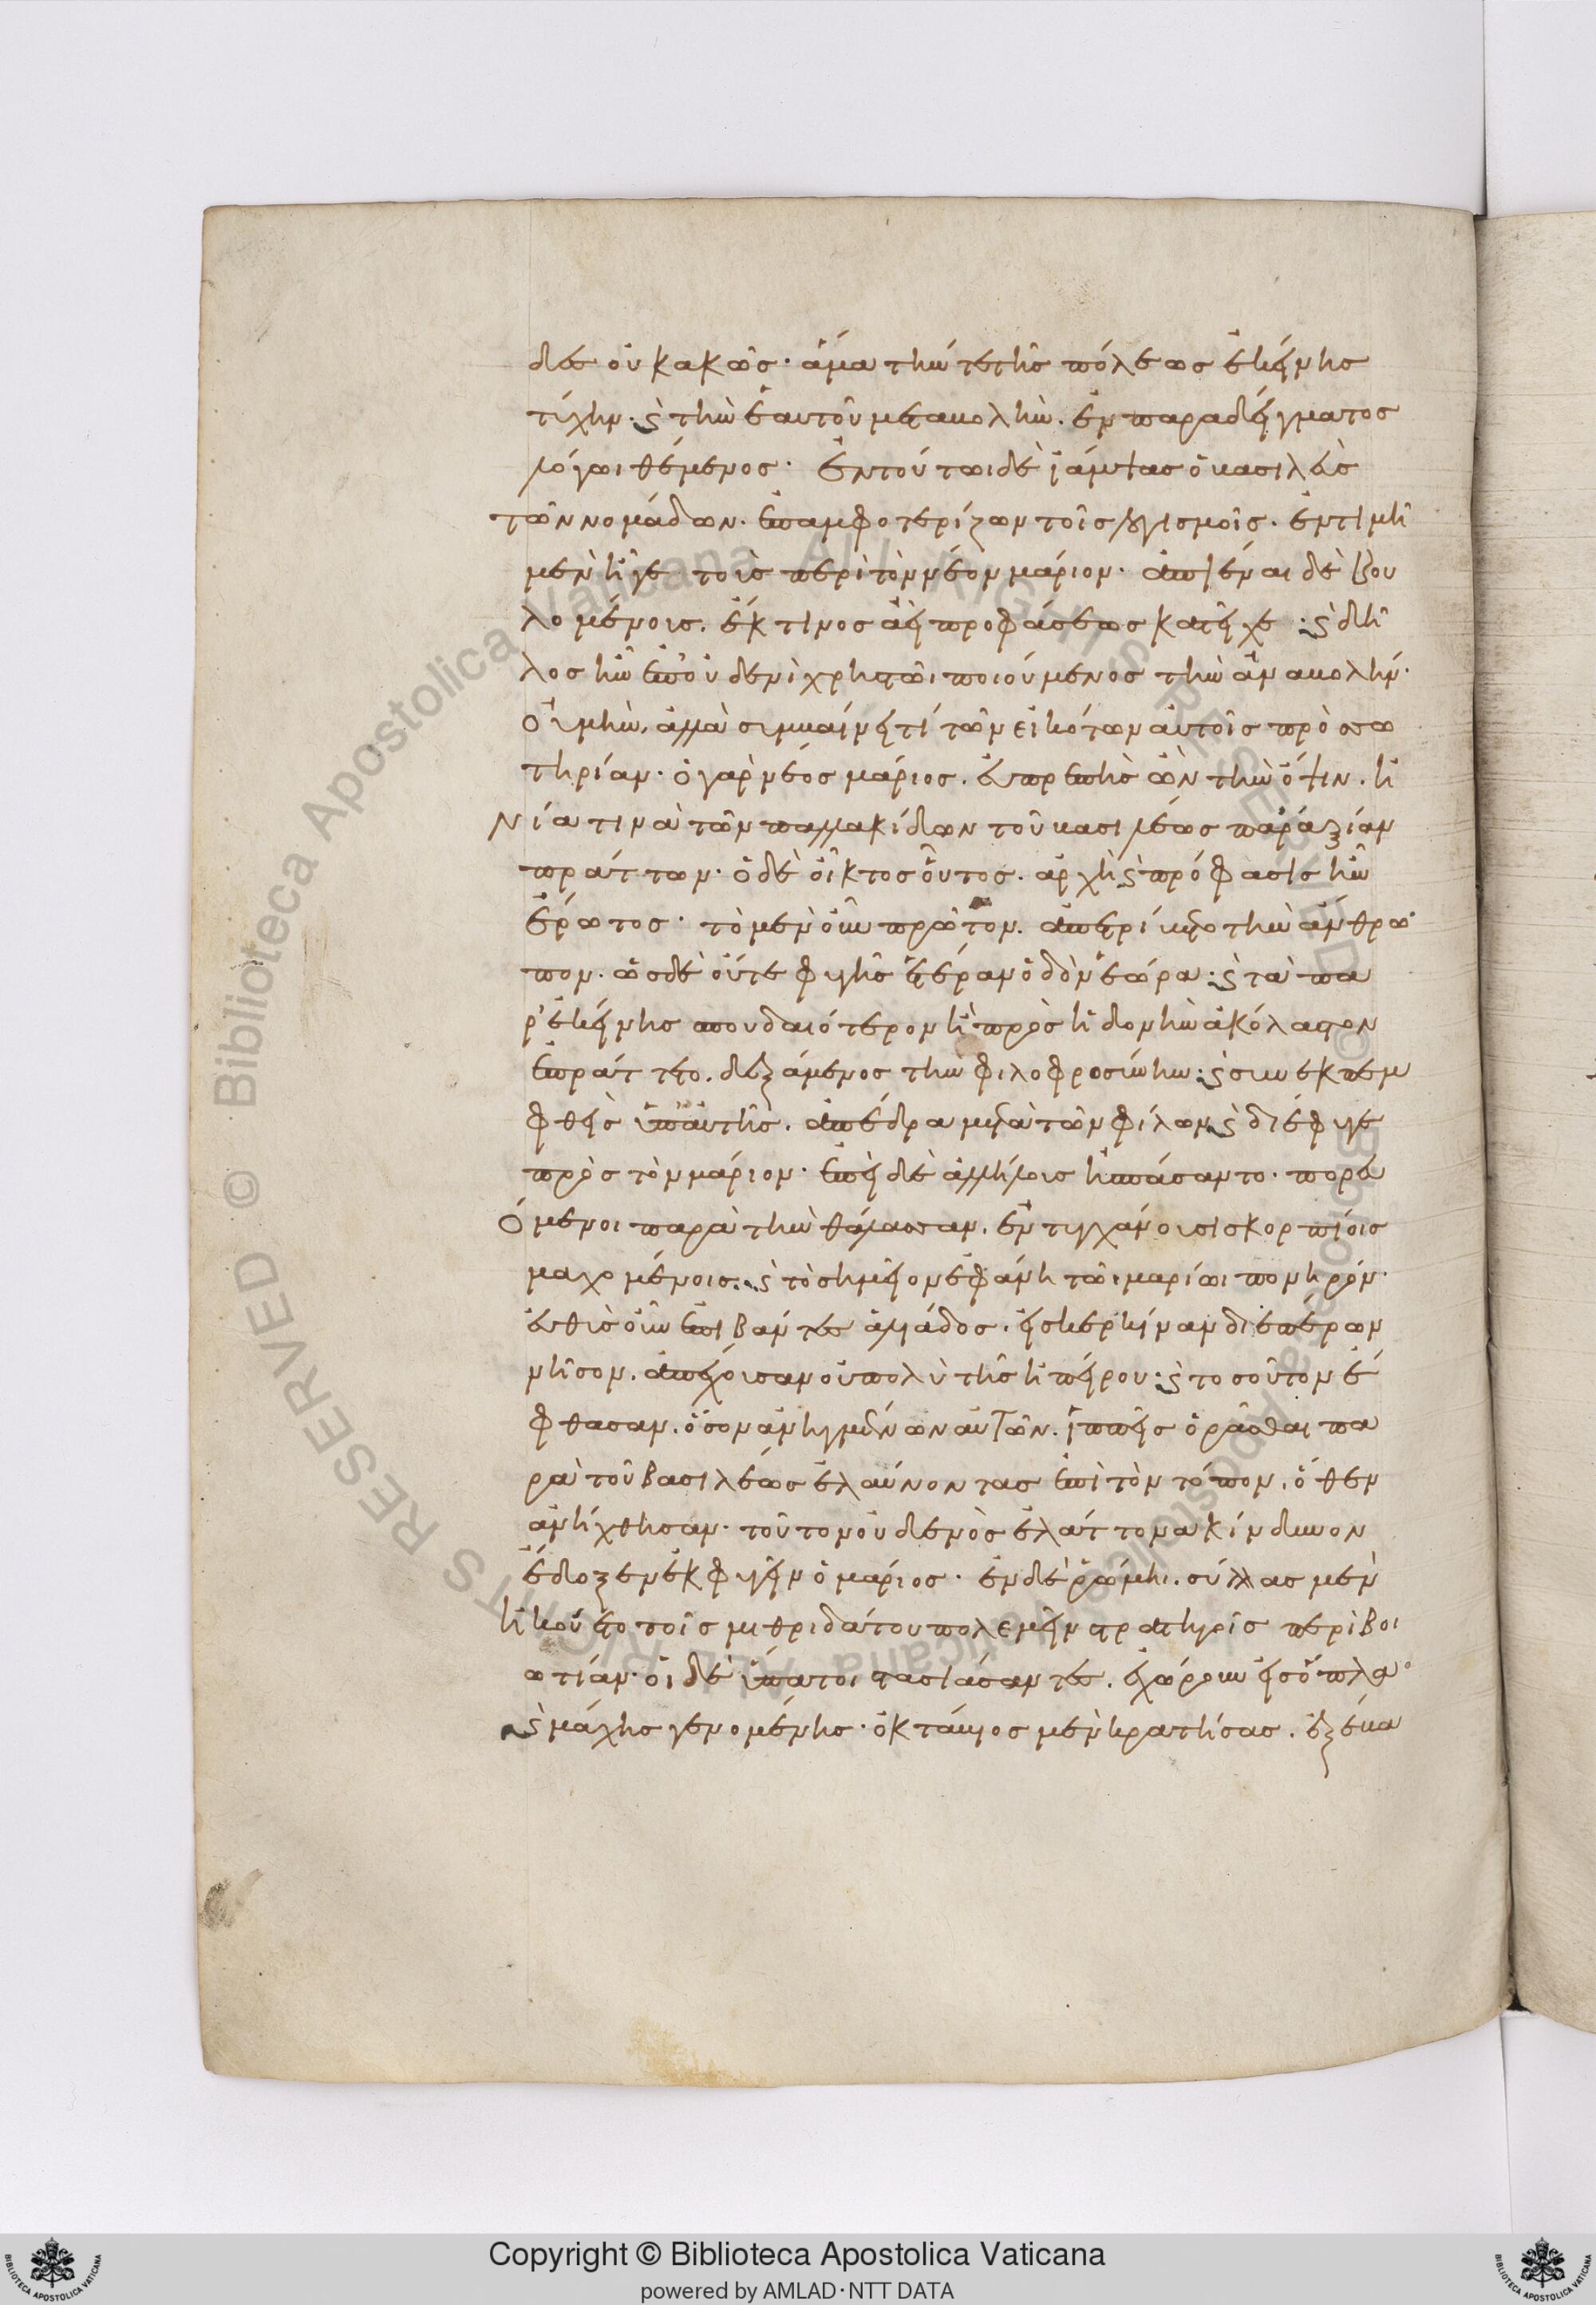 δὲ οὐ κακῶς· ἅμα τήν τε τῆς πόλεως ἐκείνης
τύχην. καὶ τὴν ἑαυτοῦ μεταβολὴν. ἐν παραδείγματος
λόγωι θέμενος· ἐν τούτωι δὲ ἰάμψας ὁ βασιλεὺς
τῶν νομάδων. ἐπαμφοτερίζων τοῖς λογισμοῖς. ἐν τιμῆ
μὲν ἦγε τοὺς περὶ τὸν νέον μάριον· ἀπιέναι δὲ βου
λομένοις. ἔκ τινος ἀεὶ προφάσεως κατεῖχε· καὶ δῆ
λος ἦν ἐπ' οὐδενὶ χρηστῶι ποιούμενος τὴν ἀναβολήν·
οὐ μὴν. ἀλλὰ συμβαίνει τί τῶν εἰκότων αὐτοῖς πρὸς σω
τηρίαν· ὁ γὰρ νέος μάριος. εὐπρεπὴς ὢν τὴν ὄψιν. ἠ
νία τινὰ τῶν παλλακίδων τοῦ βασιλέως παρ' ἀξίαν
πράττων· ὁ δὲ οἶκτος οὗτος. ἀρχὴ καὶ πρόφασις ἦν
ἔρωτος· τὸ μὲν οὖν πρῶτον. ἀπετρίβετο τὴν ἄνθρω
πον. ὡς δὲ οὔτε φυγῆς ἑτέραν ὁδὸν ἑώρα· καὶ τὰ πα
ρ' ἐκείνης σπουδαιότερον ἢ πρὸς ἡδονὴν ἀκόλαστον
ἐπράττετο. δεξάμενος τὴν φιλοφροσύνην· καὶ συνεκπεμ
φθεὶς ὑπ' αὐτῆς. ἀπέδρα μετὰ τῶν φίλων καὶ διέφυγε
πρὸς τὸν μάριον· ἐπεὶ δὲ ἀλλήλους ἠσπάσαντο· πορευ
όμενοι παρὰ τὴν θάλασσαν. ἐντυγχάνουσι σκορπίοις
μαχομένοις. καὶ τὸ σημεῖον ἐφάνη τῶι μαρίωι πονηρόν·
εὐθὺς οὖν ἐπιβάντες ἁλιάδος. εἰς κερκίναν διεπέρων
νῆσον. ἀπέχουσαν οὐ πολὺ τῆς ἠπείρου· καὶ τοσοῦτον ἔ
φθασαν. ὅσον ἀνηγμένων αὐτῶν. ἱππεῖς ὁρᾶσθαι πα
ρὰ τοῦ βασιλέως ἐλαύνοντας ἐπὶ τὸν τόπον. ὅθεν
ἀνήχθησαν· τοῦτον οὐδενὸς ἐλάττονα κίνδυνον
ἔδοξεν ἐκφυγεῖν ὁ μάριος· ἐν δὲ ῥώμηι. σύλλας μὲν
ἠκούετο τοῖς μιθριδάτου πολεμεῖν στρατηγοῖς περὶ βοι
ωτίαν· οἱ δὲ ὕπατοι στασιάσαντες. ἐχώρουν εἰς ὅπλα·
καὶ μάχης γενομένης· ὀκτάβιος μὲν κρατήσας. ἐξέβα
Copyright © Biblioteca Apostolica Vaticana
powered by AMLAD·NTT DATA